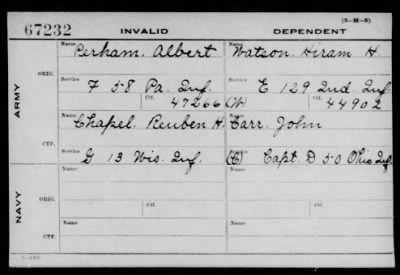 (3-M-5)
67232 INVALID DEPENDENT
Name Perham, Albert Name Watson, Hiram H.
ARMY ORIG. Service F 58 Pa. Inf. Service E 129 Ind. Inf.
Ctf. 47266 (W) Ctf. 44902
Name Chapel, Reuben H. Name Carr, John
CTF. Service G 13 Wis. Inf. Service (C) Capt. D 50 Ohio Inf.
NAVY ORIG. Name Ctf. Name Ctf.
CTF. Name Name